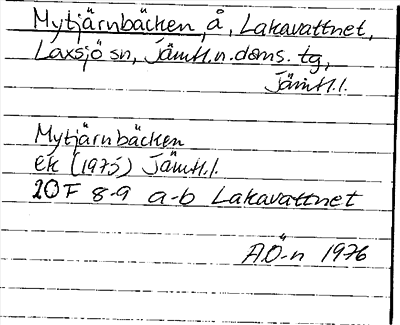 Mytjärnbäcken, å, Lakavattnet,
Laxsjö sn, Jämtl.n.doms.tg,
Jämtl.l.
Mytjärnbäcken
ek (1975) Jämtl.l.
20F 8-9 a-b Lakavattnet
A.Ö-n 1976